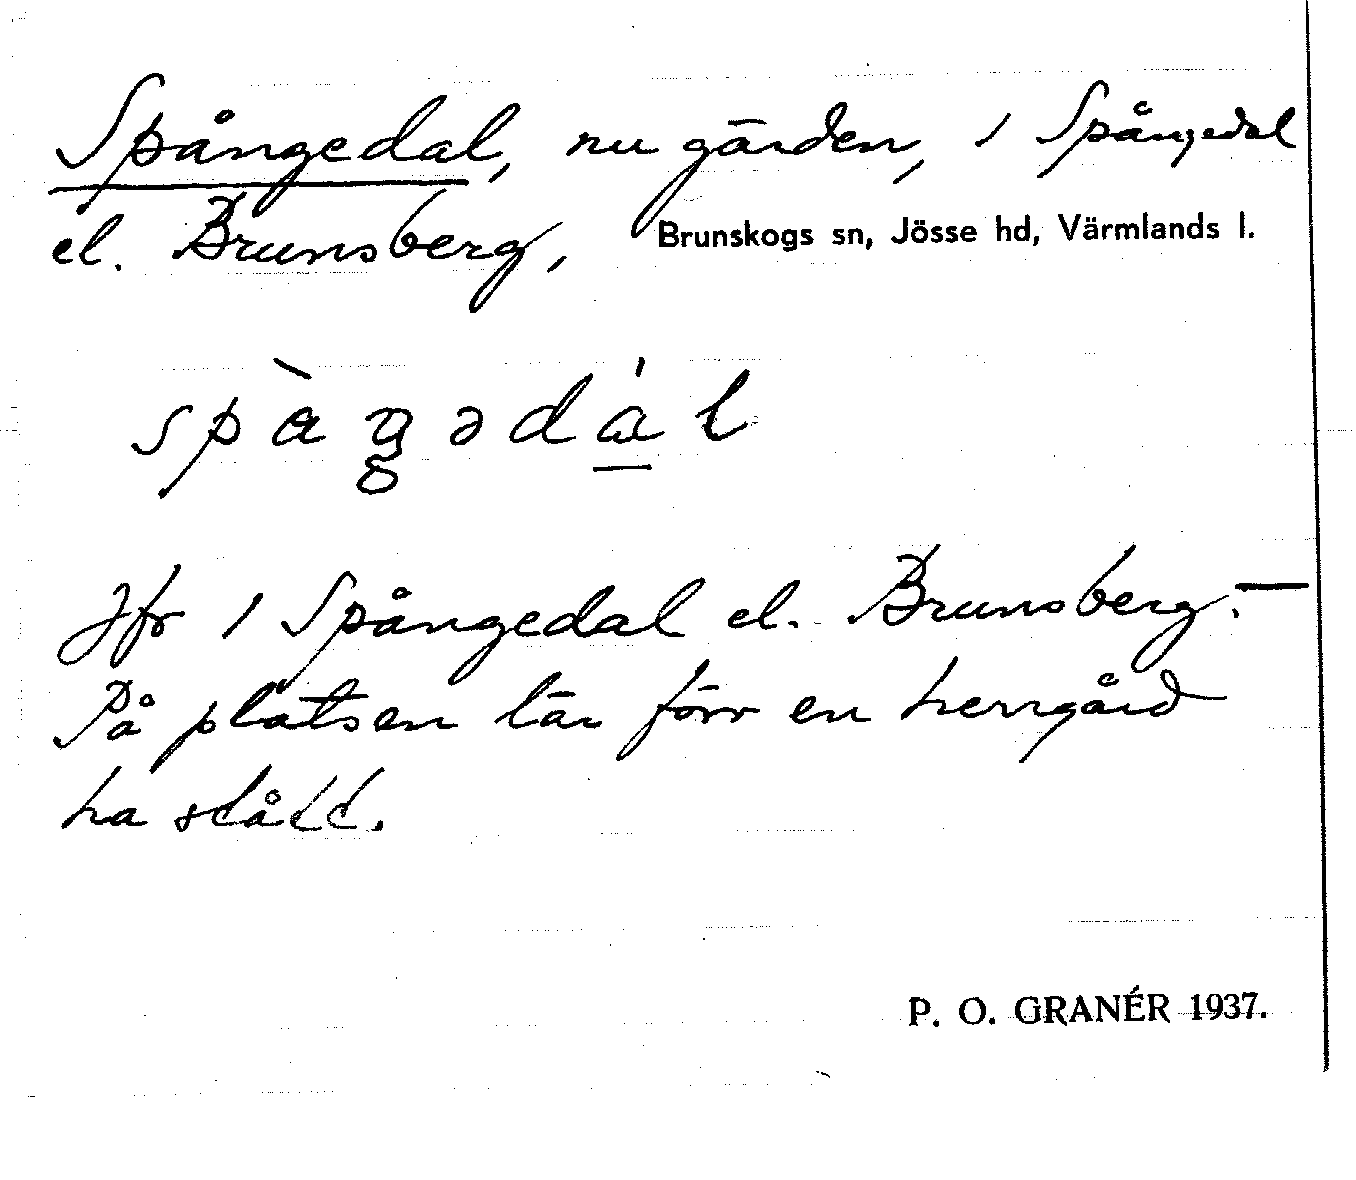 Spångedal, nu gärden, 1 Spångedal
el. Brunsberg, Brunskogs sn, Jösse hd, Värmlands l.
Jfr 1 Spångedal el. Brunsberg. —
På platsen lär förr en herrgård
ha stått.
P. O. GRANÉR 1937.